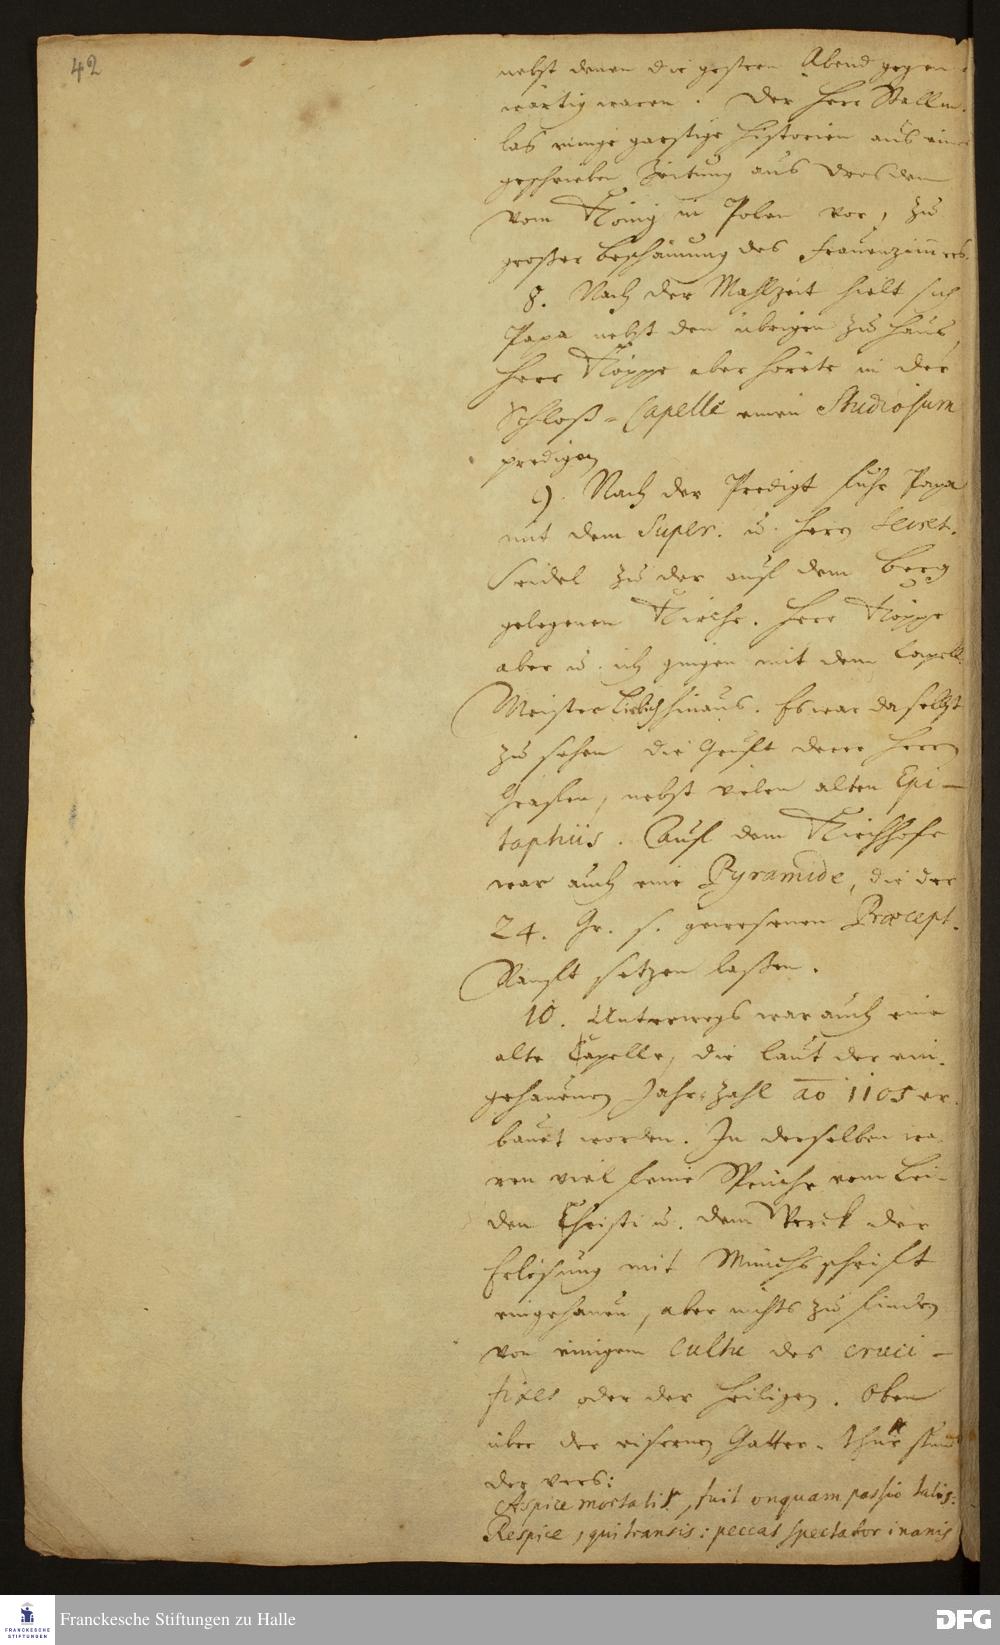 42
nebst denen die gestern Abend gegen
wärtig waren. Der Herr Stallm.
las einige garstige Historien aus einer
geschrieben Zeitung aus Dresden
vom König in Polen vor, zu
großer Beschämung des Frauenzimers.
8. Nach der Mahlzeit hielt sich
Papa nebst den übrigen zu Hauß,
Herr Köppe aber hörete in der
Schloß-Capelle einen Studiosum
predigen
9. Nach der Predigt fuhr Papa
mit dem Super. u. Herrn Secret.
Seidel zu der auf dem Berg
gelegenen Kirche. Herr Köppe
aber u. ich gingen mit dem Capell
Meister Liebich hinaus. Es war daselbst
zu sehen die Gruft derer Herrn
Grafen, nebst vielen alten Epi-
taphiis. Auf dem Kirchhofe
war auch eine Pyramide, die der
24. Gr. s. gewesenen Præcept.
setzen laßen.
10. Unterwegs war auch eine
alte Capelle, die laut der ein-
gehauenen Jahr-Zahl ao 1105 er-
bauet worden. In derselben wa-
ren viel feine Sprüche vom Lei-
den Christi u. dem Werck der
Erlösung mit Münchsschrift
eingehauen, aber nichts zu finden
von einigem Cultu des cruci-
fixes oder der Heiligen. Oben
über der eisernen Gatter-Thür stund
der vers:
Aspice mortalis, fuit unquam passio talis:
Respice, qui transis: peccas spectator inanis
FRANCKESCHE
STIFTUNGEN
Franckesche Stiftungen zu Halle
DFG